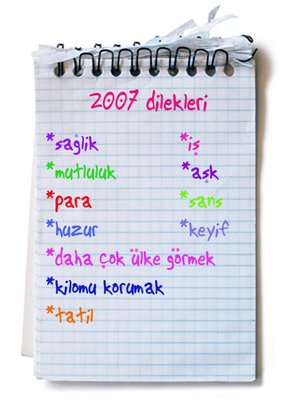 2007 dilekleri
*sağlik *iş
*mutluluk *aşk
*para *şans
*huzur *keyif
*daha çok ülke görmek
*kilomu korumak
*tatil